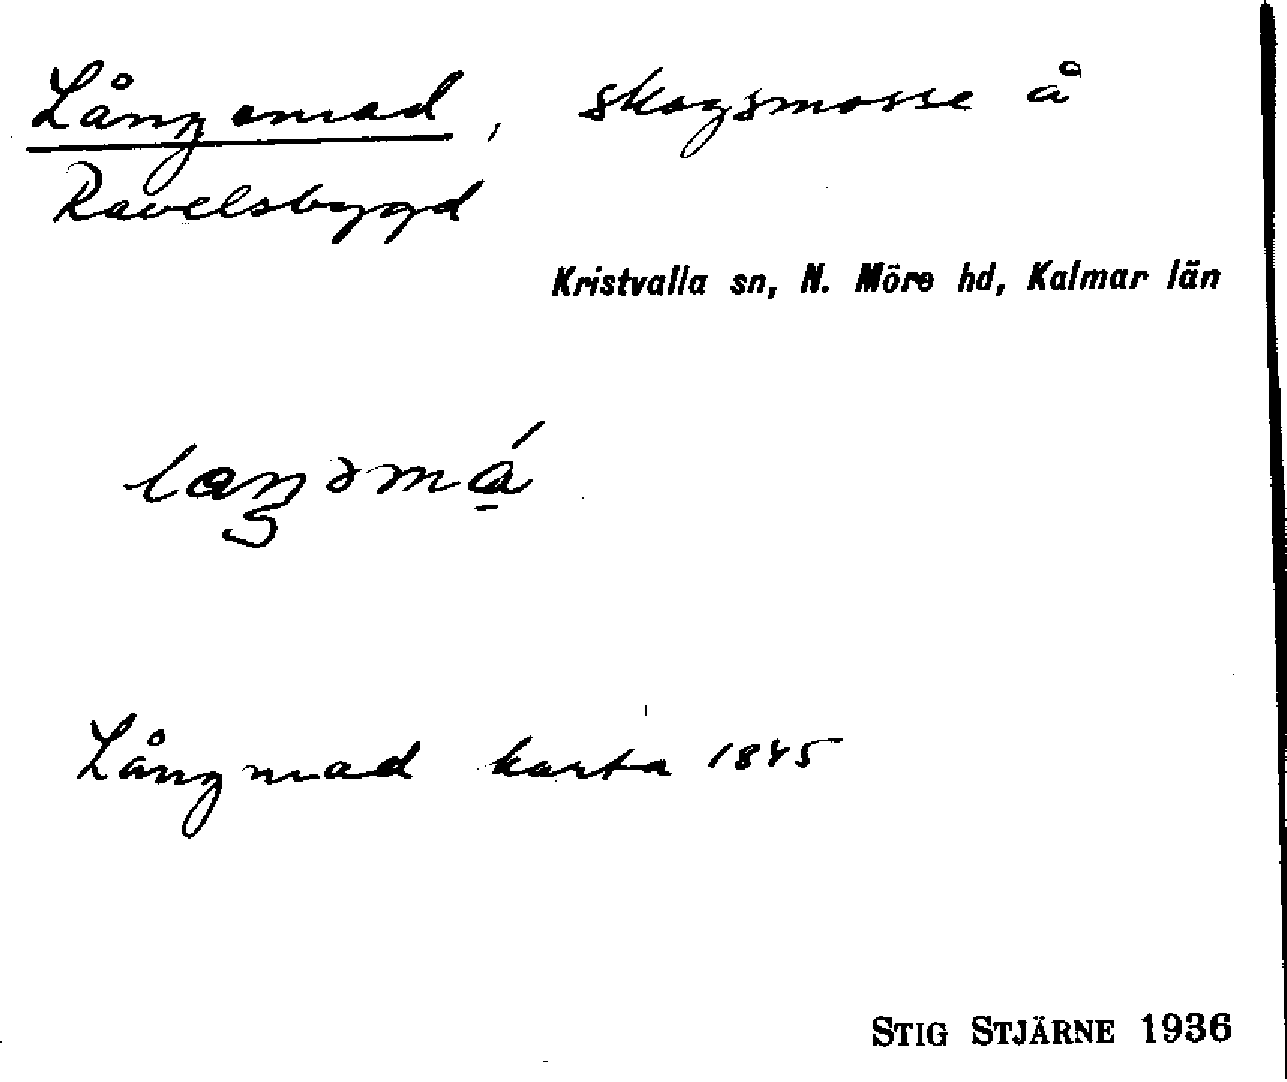 Långemad, skogsmosse å
Ravelsbygd
Kristvalla sn, N. Möre hd, Kalmar län
Långmad karta 1845
STIG STJÄRNE 1936